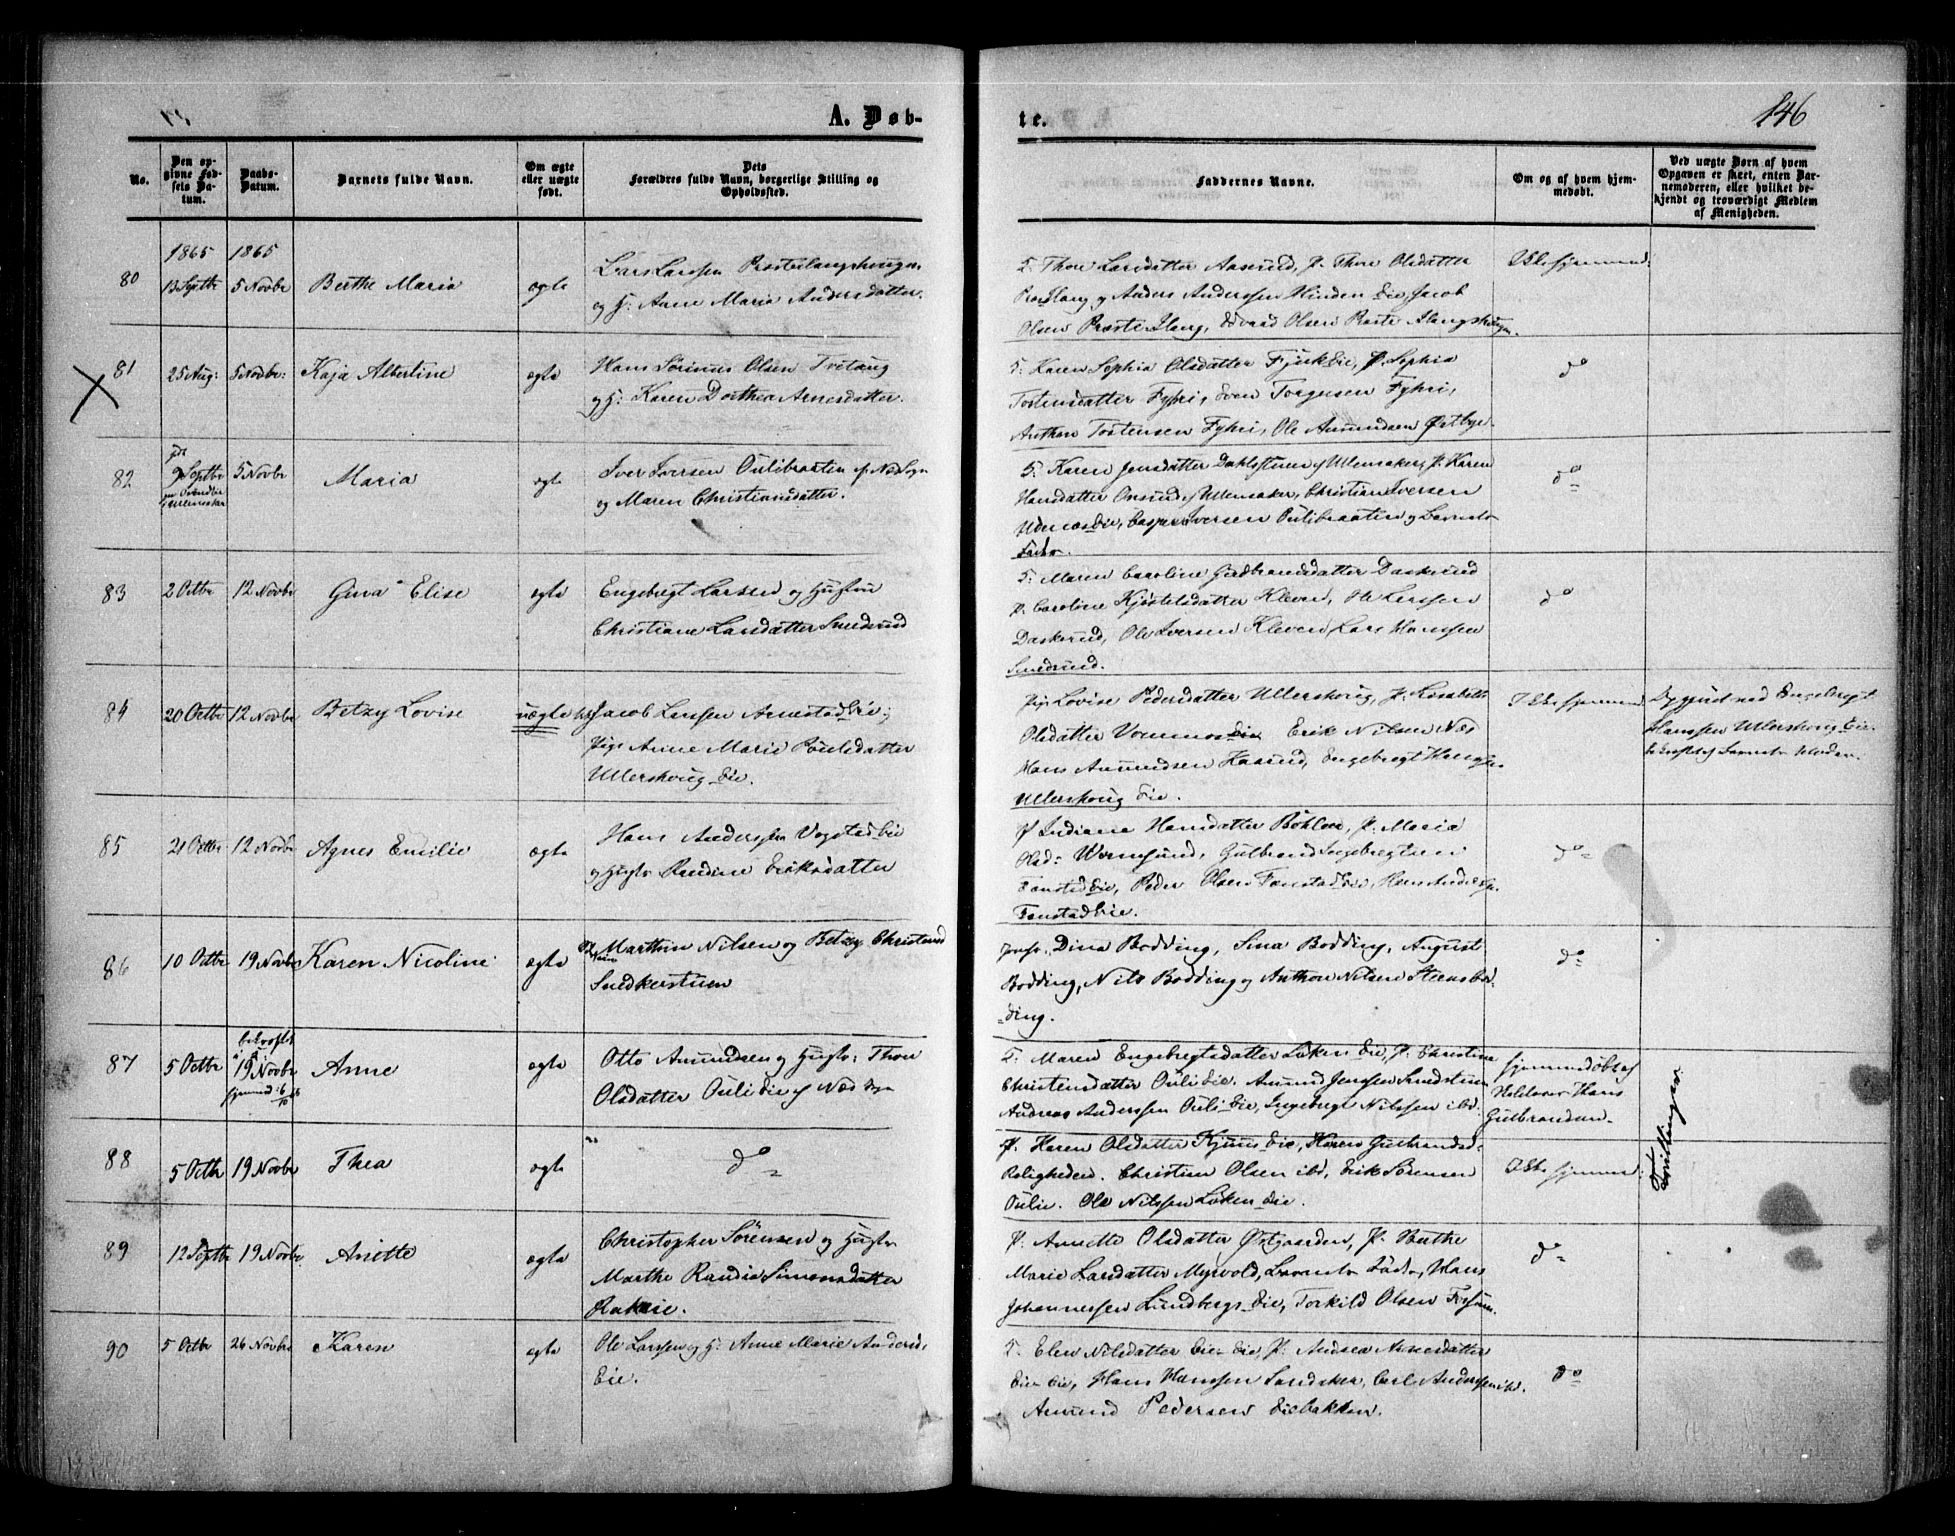 A. Døb-
te.
146
No.
Den op-
givne Fød-
sels Da-
tum.
Daabs-
Datum.
Barnets fulde Navn.
Om ægte
eller uægte
født.
Dets
Forældres fulde Navn, borgerlige Stilling og
Opholdssted.
Faddernes Navne.
Om og af hvem hjem-
medøbt.
Ved uægte Børn af hvem
Opgaven er skeet, enten Bar-
nemoderen, eller hvilket be-
kjendt og troværdigt Medlem
af Menigheden.
1865 1865
80 13 Septbr 5 Novbr Berthe Maria ægte
Lars Larssen
og H: Anne Maria Andersdatter.
F. Thore Larsdatter Aaserud, P. Thore Olsdatter
og Anders Anderssen Hinden Eie, Jacob
Olsen Edvard Olsen
Ikke hjemmed:
81 25 Aug: 5 Novbr: Kaja Albertine ægte
Hans Sørinus Olsen Tveitang
og H: Karen Dorthea Arnesdatter.
F. Karen Sophia Olsdatter Eie, P. Sophia
Tostensdatter Fyhri, Sven Torgusen Fyhri,
Anthon Tostensen Fyhri, Ole Amundsen Østbye.
do
82 9 Septbr 5 Novbr Maria ægte
Iver Iversen Oulibraaten af Næs Sogn
og Maren Christiansdatter.
F. Karen Jensdatter Dahlstuen af Ullensaker, P. Karen
Hansdatter Onsrud af Ullensaker, Christian Iversen
Udenæs Eie, Casper Iversen Oulibraaten og Barnets
Fader.
do
83 2 Octbr 12 Novbr Gina Elise ægte
Engebregt Larsen og Hustru
Christiane Larsdatter Smedsrud
F. Maren Caroline Gudbrandsdatter Daskerud
P. Caroline Kjøstelsdatter Kleven, Ole Larssen
Daskerud, Ole Iversen Kleven, Lars Hanssen
Smedsrud.
do
84 20 Octbr 12 Novbr Betzy Lovise uægte
Jacob Larssen Arnestad Eie;
Pige Anne Marie Poulsdatter
Ullershoug Eie.
Pige Lovise Pedersdatter Ullershoug, P. Lisabeth
Olsdatter Vormnes Eie Erik Nilsen Næs
Hans Amundsen Haserud, Engebregt Hanssen
Ullershoug Eie.
Ikke hjemmed:
Engebregt
Hanssen Ullershoug Eie
bekræftet af Barnets Moder.
85 21 Octbr 12 Novbr Agnes Emilie ægte
Hans Anderssen Vogstad Eie
og Hustr. Randine Eriksdatter
P Indiana Hansdatter Bøhler, P. Maria
Olsd: Wormsund, Gulbrand Ingebregtsen
Fonstad Eie, Peder Olsen Fonstad Eie, Hans
Fonstad Eie.
do
86 10 Octbr 19 Novbr Karen Nicoline ægte
Marthin Nilsen og Betzy Christensd
Snedkerstuen
Jomfr. Dina Bodding, Sina Bodding, August
Bodding, Nils Bodding og Anthon Nilsen Steensbod-
ding.
do
87 5 Octbr bekræftet i K. 19 Novbr Anne ægte
Otto Amundsen og Hustr: Thore
Olsdatter Ouli Eie af Næs Sogn
F. Maren Engebregtsdatter Løken Eie, P. Christine
Christensdatter Ouli Eie. Amund Jenssen Smedstuen
Andreas Anderssen Ouli Eie, Ingebregt Nilssen ibd.
hjemmedøbt af
Hans
Gulbrandsen.
88 5 Octbr 19 Novbr Thea ægte
do
P. Karen Olsdatter Eie, Karen Gulbrandsd:
Roligheden. Christian Olsen ibd, Erik Sørensen
Oulie. Ole Nilssen Løken Eie.
Ikke hjemmed:
Tvillinger.
89 12 Septbr 19 Novbr Anette ægte
Christopher Sørensen og Hustr.
Marthe Randia Simensdatter
Rakeie.
P. Annette Olsdatter Østgaarden, P. Berthe
Marie Larsdatter Myrvold, Barnets Fader, Hans
Johannessen Lundbergs Eie, Torkild Olsen Fossum.
do
90 5 Octbr 26 Novbr Karen ægte
Ole Larssen og H: Anne Marie Andersd.
Eie.
F. Elen Nilsdatter Eie Eie, P. Andrea Arnesdatter
Eie Eie, Hans Hanssen Sandaker, Carl Anderssen ibd.
Amund Pedersen Eiebakken.
do